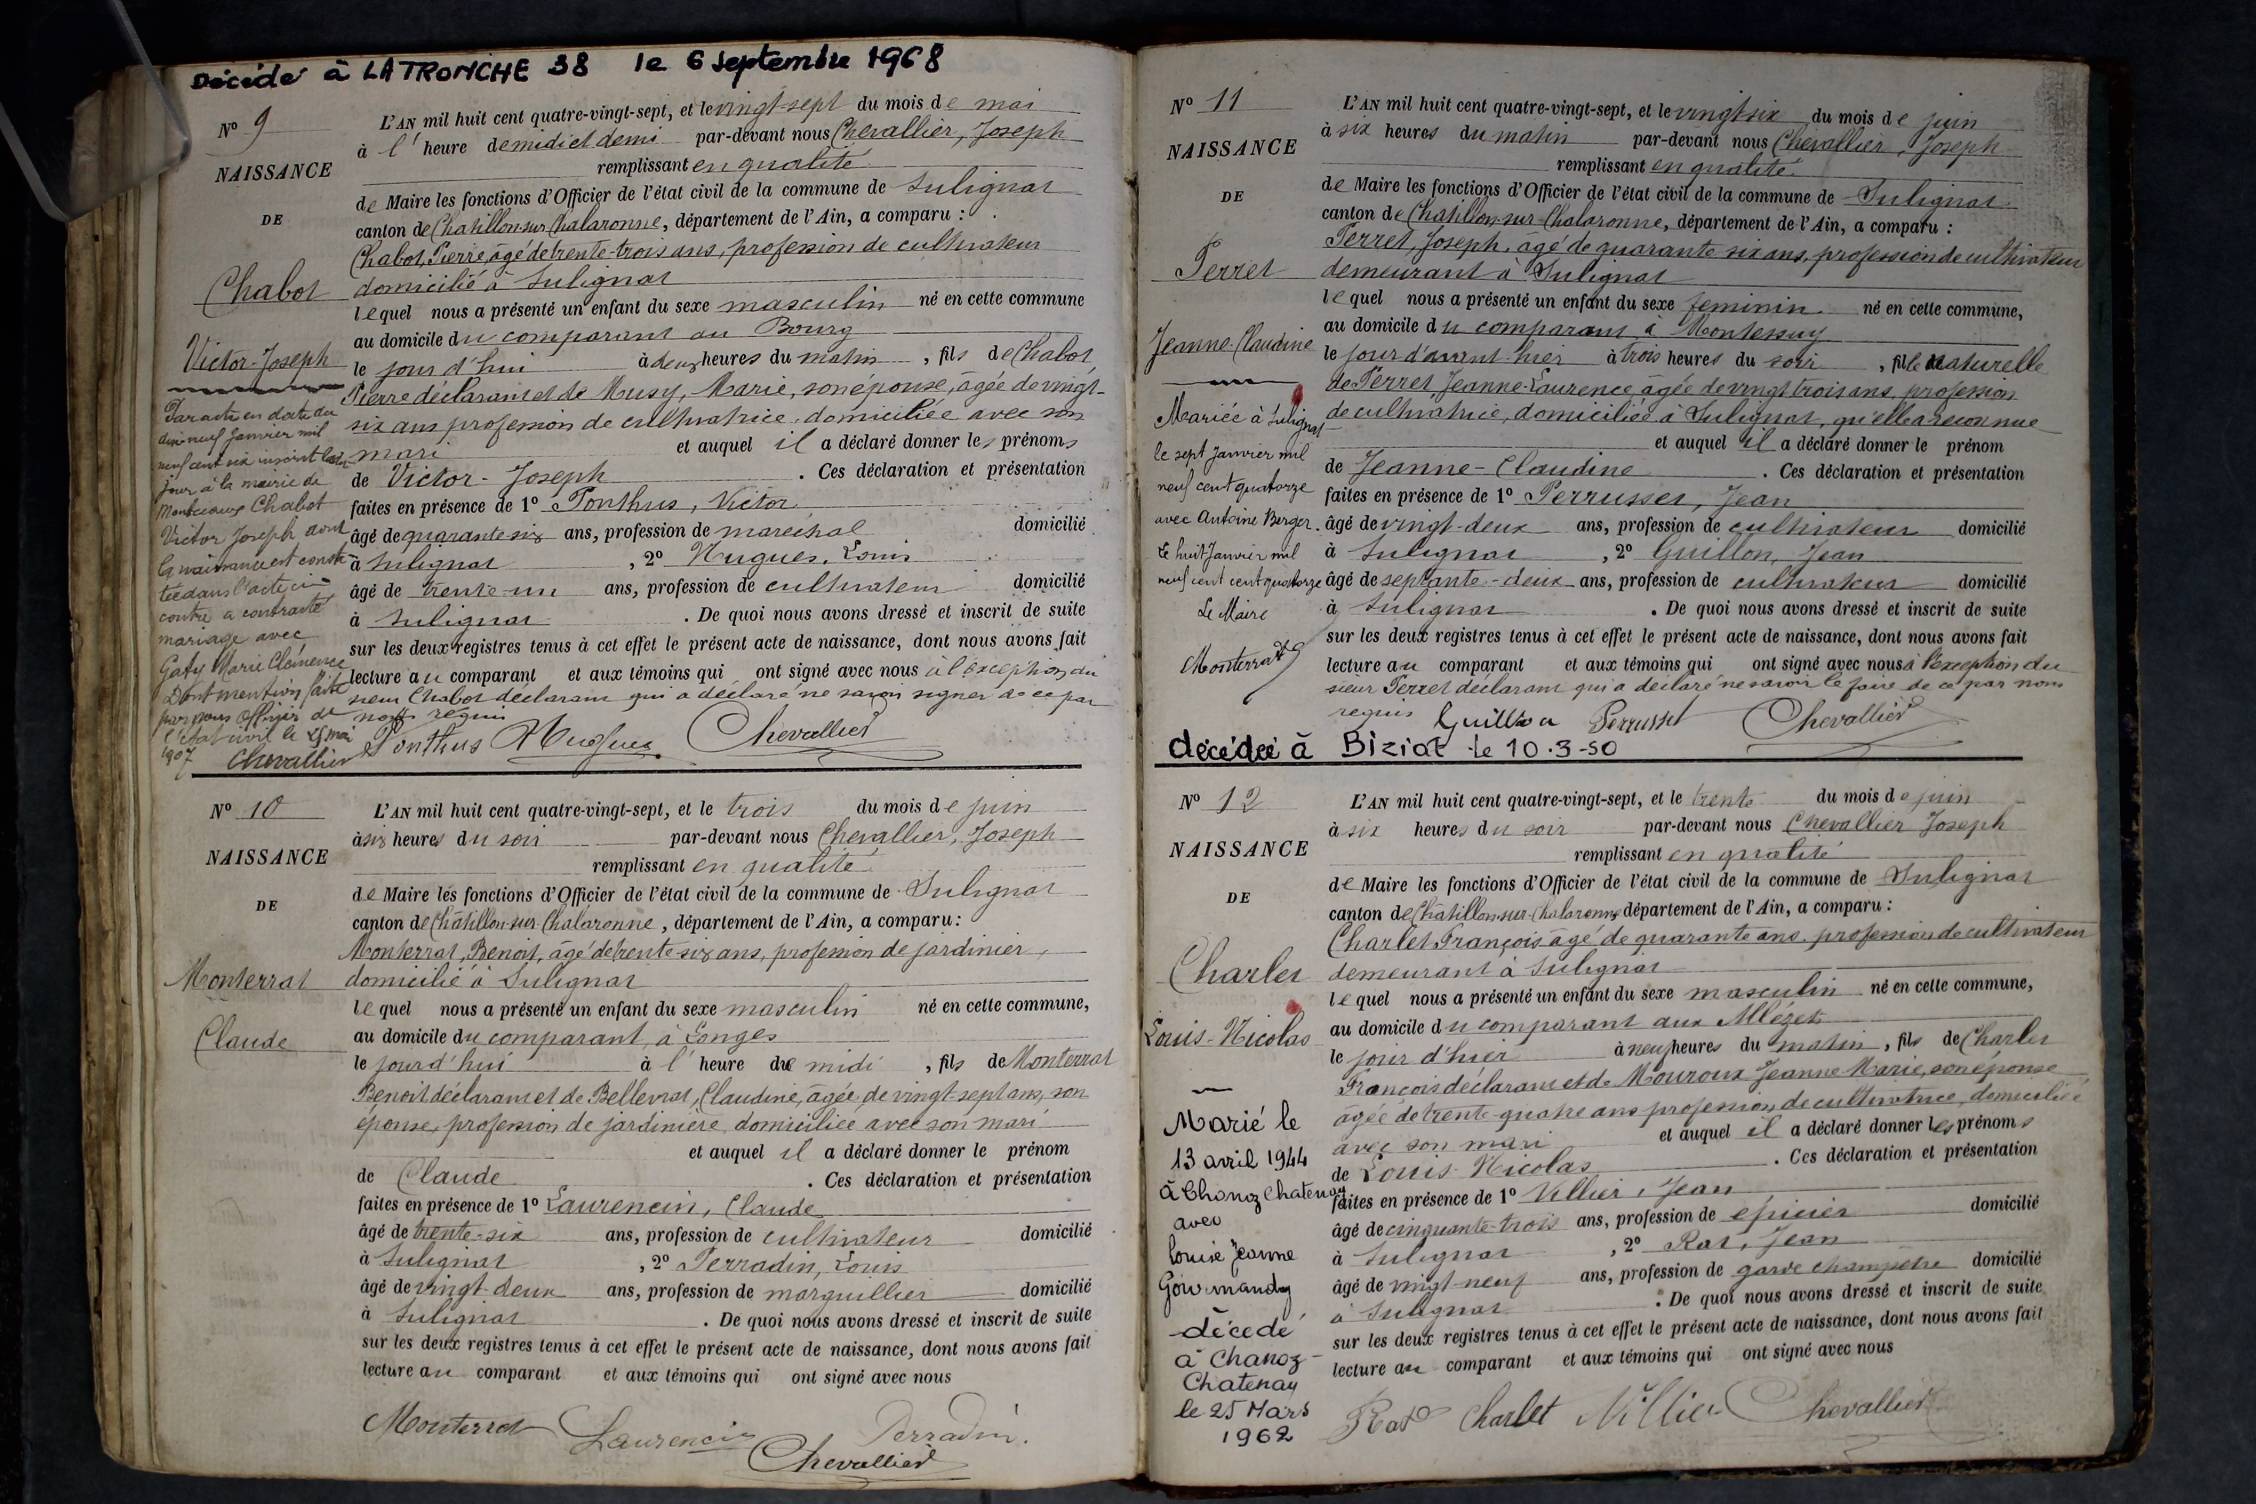 Décédé à LA TRONCHE 38 le 6 septembre 1968
N° 9
NAISSANCE
DE
Chabot
Victor-Joseph
Par acte en date du
dix neuf Janvier mil
neuf cent six inscrit le
jour à la mairie de
Montceaux Chabot
Victor Joseph dont
la naissance est consta
tée dans l'acte ci
contre a contracté
mariage avec
Gaty Marie Clémence
Dont mention faite
par nous Officier de
l'état civil le 25 mai
1907 Chevallier
L'AN mil huit cent quatre-vingt-sept, et le vingt-sept du mois de mai
à l'heure de midi et demi par-devant nous Chevallier, Joseph
remplissant en qualité
de Maire les fonctions d'Officier de l'état civil de la commune de Sulignat
canton de Chatillon-sur-Chalaronne, département de l'Ain, a comparu :
Chabot, Pierre, âgé de trente-trois ans, profession de cultivateur
domicilié à Sulignat
lequel nous a présenté un enfant du sexe masculin né en cette commune
au domicile du comparant au Bourg
le jour d'hui à deux heures du matin, fils de Chabot,
Pierre déclarant et de Musy, Marie, son épouse, âgée de vingt-
six ans profession de cultivatrice, domiciliée avec son
mari et auquel il a déclaré donner les prénoms
de Victor-Joseph. Ces déclaration et présentation
faites en présence de 1° Ponthus, Victor
âgé de quarante-six ans, profession de maréchal domicilié
à Sulignat, 2° Hugues, Louis
âgé de trente-un ans, profession de cultivateur domicilié
à Sulignat. De quoi nous avons dressé et inscrit de suite
sur les deux registres tenus à cet effet le présent acte de naissance, dont nous avons fait
lecture au comparant et aux témoins qui ont signé avec nous à l'exception du
sieur Chabot déclarant qui a déclaré ne savoir signer de ce par
nous requis
Ponthus Hugues Chevallier
N° 10
NAISSANCE
DE
Monterrat
Claude
L'AN mil huit cent quatre-vingt-sept, et le trois du mois de juin
à six heures du soir par-devant nous Chevallier, Joseph
remplissant en qualité
de Maire les fonctions d'Officier de l'état civil de la commune de Sulignat
canton de Châtillon-sur-Chalaronne, département de l'Ain, a comparu :
Monterrat, Benoit, âgé de trente-six ans, profession de jardinier,
domicilié à Sulignat
lequel nous a présenté un enfant du sexe masculin né en cette commune,
au domicile du comparant, à Longes
le jourd'hui à l'heure de midi, fils de Monterrat
Benoit déclarant et de Bellevrat, Claudine, âgée de vingt-sept ans, son
épouse, profession de jardinière, domiciliée avec son mari
et auquel il a déclaré donner le prénom
de Claude. Ces déclaration et présentation
faites en présence de 1° Laurencin, Claude
âgé de trente-six ans, profession de cultivateur domicilié
à Sulignat, 2° Perradin, Louis
âgé de vingt-deux ans, profession de marguillier domicilié
à Sulignat. De quoi nous avons dressé et inscrit de suite
sur les deux registres tenus à cet effet le présent acte de naissance, dont nous avons fait
lecture au comparant et aux témoins qui ont signé avec nous
Monterrat Laurencin Perradin.
Chevallier
N° 11
NAISSANCE
DE
Perret
Jeanne-Claudine
Mariée à Sulignat
le sept janvier mil
neuf cent quatorze
avec Antoine Berger.
Le huit Janvier mil
neuf cent cent quatorze
Le Maire
Monterrat
L'AN mil huit cent quatre-vingt-sept, et le vingt-six du mois de juin
à six heures du matin par-devant nous Chevallier, Joseph
remplissant en qualité
de Maire les fonctions d'Officier de l'état civil de la commune de Sulignat
canton de Chatillon-sur-Chalaronne, département de l'Ain, a comparu :
Perret, Joseph, âgé de quarante-six ans, profession de cultivateur
demeurant à Sulignat
lequel nous a présenté un enfant du sexe féminin né en cette commune,
au domicile du comparant à Montessuy
le jour d'avant-hier à trois heures du soir, fille naturelle
de Perret Jeanne-Laurence, âgée de vingt trois ans, profession
de cultivatrice, domiciliée à Sulignat, qu'elle a reconnue
et auquel il a déclaré donner le prénom
de Jeanne-Claudine. Ces déclaration et présentation
faites en présence de 1° Perrusset, Jean
âgé de vingt-deux ans, profession de cultivateur domicilié
à Sulignat, 2° Guillon, Jean
âgé de septante-deux ans, profession de cultivateur domicilié
à Sulignat. De quoi nous avons dressé et inscrit de suite
sur les deux registres tenus à cet effet le présent acte de naissance, dont nous avons fait
lecture au comparant et aux témoins qui ont signé avec nous à l'exception du
sieur Perret déclarant qui a déclaré ne savoir le faire de ce par nous
requis Guillon Perrusset Chevallier
décédée à Biziat le 10-3-50
N° 12
NAISSANCE
DE
Charlet
Louis-Nicolas
Marié le
13 avril 1944
à Chanoz Chatenay
avec
Louise Jeanne
Gourmandy
décédé
à Chanoz-
Chatenay
le 25 Mars
1962
L'AN mil huit cent quatre-vingt-sept, et le trente du mois de juin
à six heures du soir par-devant nous Chevallier Joseph
remplissant en qualité
de Maire les fonctions d'Officier de l'état civil de la commune de Sulignat
canton de Châtillon-sur-Chalaronne département de l'Ain, a comparu :
Charlet François âgé de quarante ans, profession de cultivateur
demeurant à Sulignat
lequel nous a présenté un enfant du sexe masculin né en cette commune,
au domicile du comparant aux
le jour d'hier à neuf heures du matin, fils de Charlet
François déclarant et de Mouroux Jeanne Marie, son épouse
âgée de trente-quatre ans profession de cultivatrice, domiciliée
avec son mari et auquel il a déclaré donner les prénoms
de Louis-Nicolas. Ces déclaration et présentation
faites en présence de 1° Villier, Jean
âgé de cinquante-trois ans, profession de épicier domicilié
à Sulignat, 2° Rat, Jean
âgé de vingt-neuf ans, profession de garde champêtre domicilié
à Sulignat. De quoi nous avons dressé et inscrit de suite
sur les deux registres tenus à cet effet le présent acte de naissance, dont nous avons fait
lecture au comparant et aux témoins qui ont signé avec nous
Rat Charlet Villier Chevallier